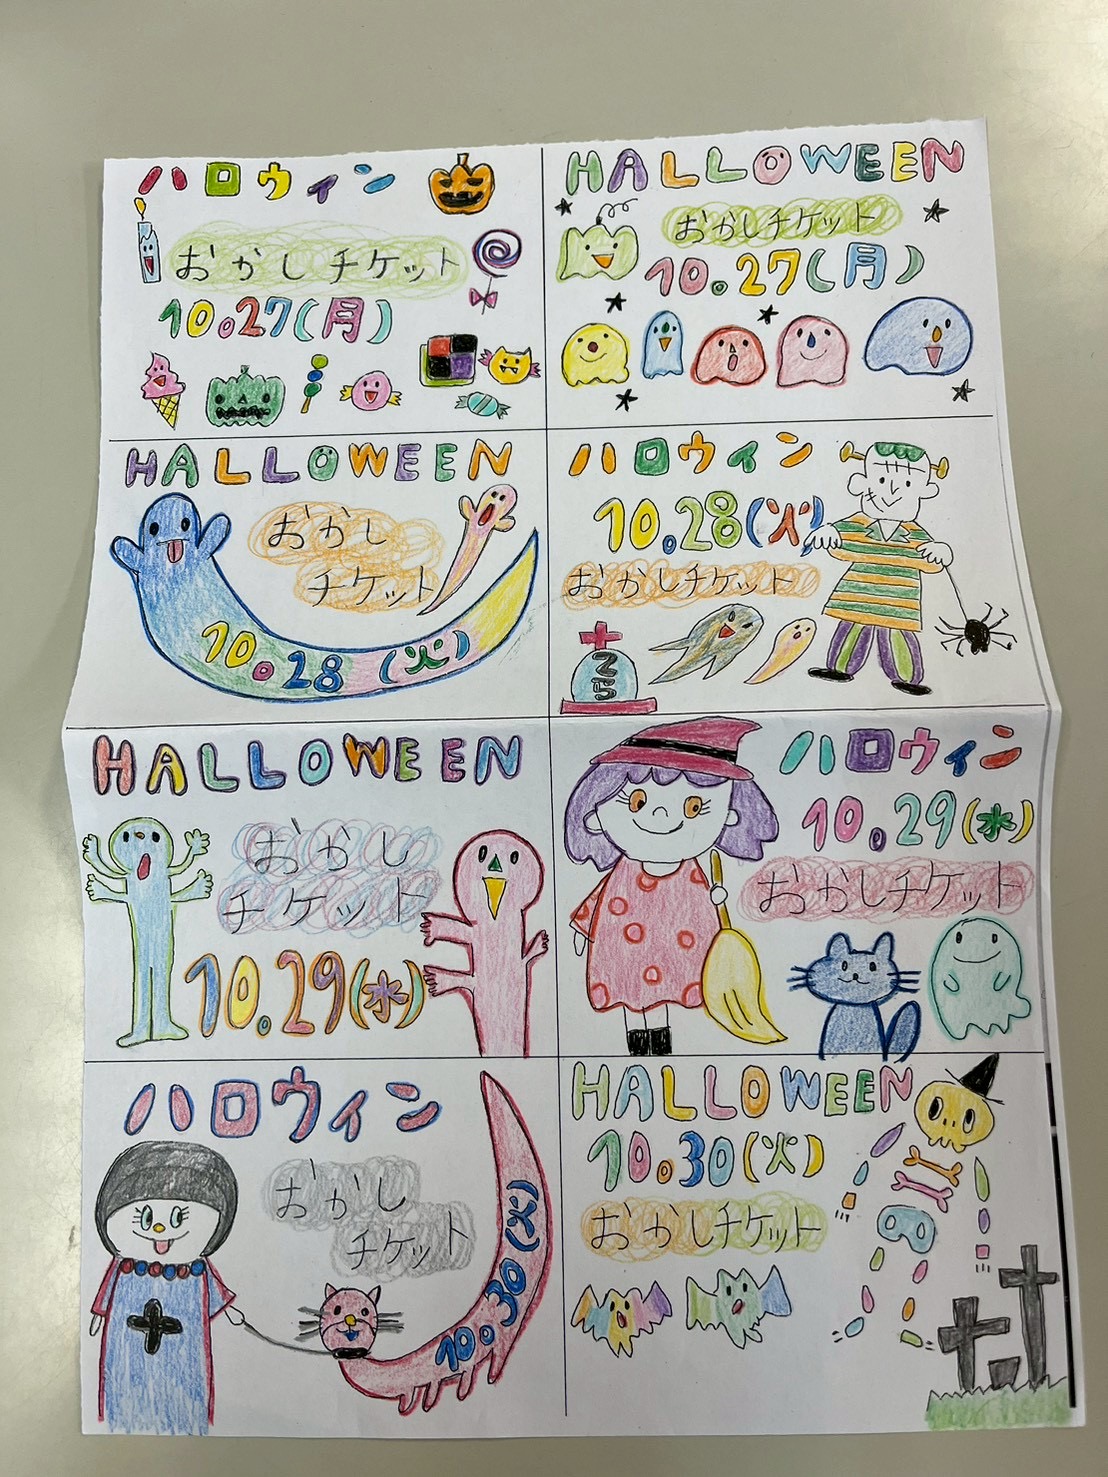 ハロウィン
おかしチケット
10.27(月)
HALLOWEEN
おかしチケット
10.27(月)
HALLOWEEN
おかし
チケット
10.28(火)
ハロウィン
10.28(火)
おかしチケット
HALLOWEEN
おかし
チケット
10.29(水)
ハロウィン
10.29(水)
おかしチケット
ハロウィン
おかし
チケット
10.30(火)
HALLOWEEN
10.30(火)
おかしチケット